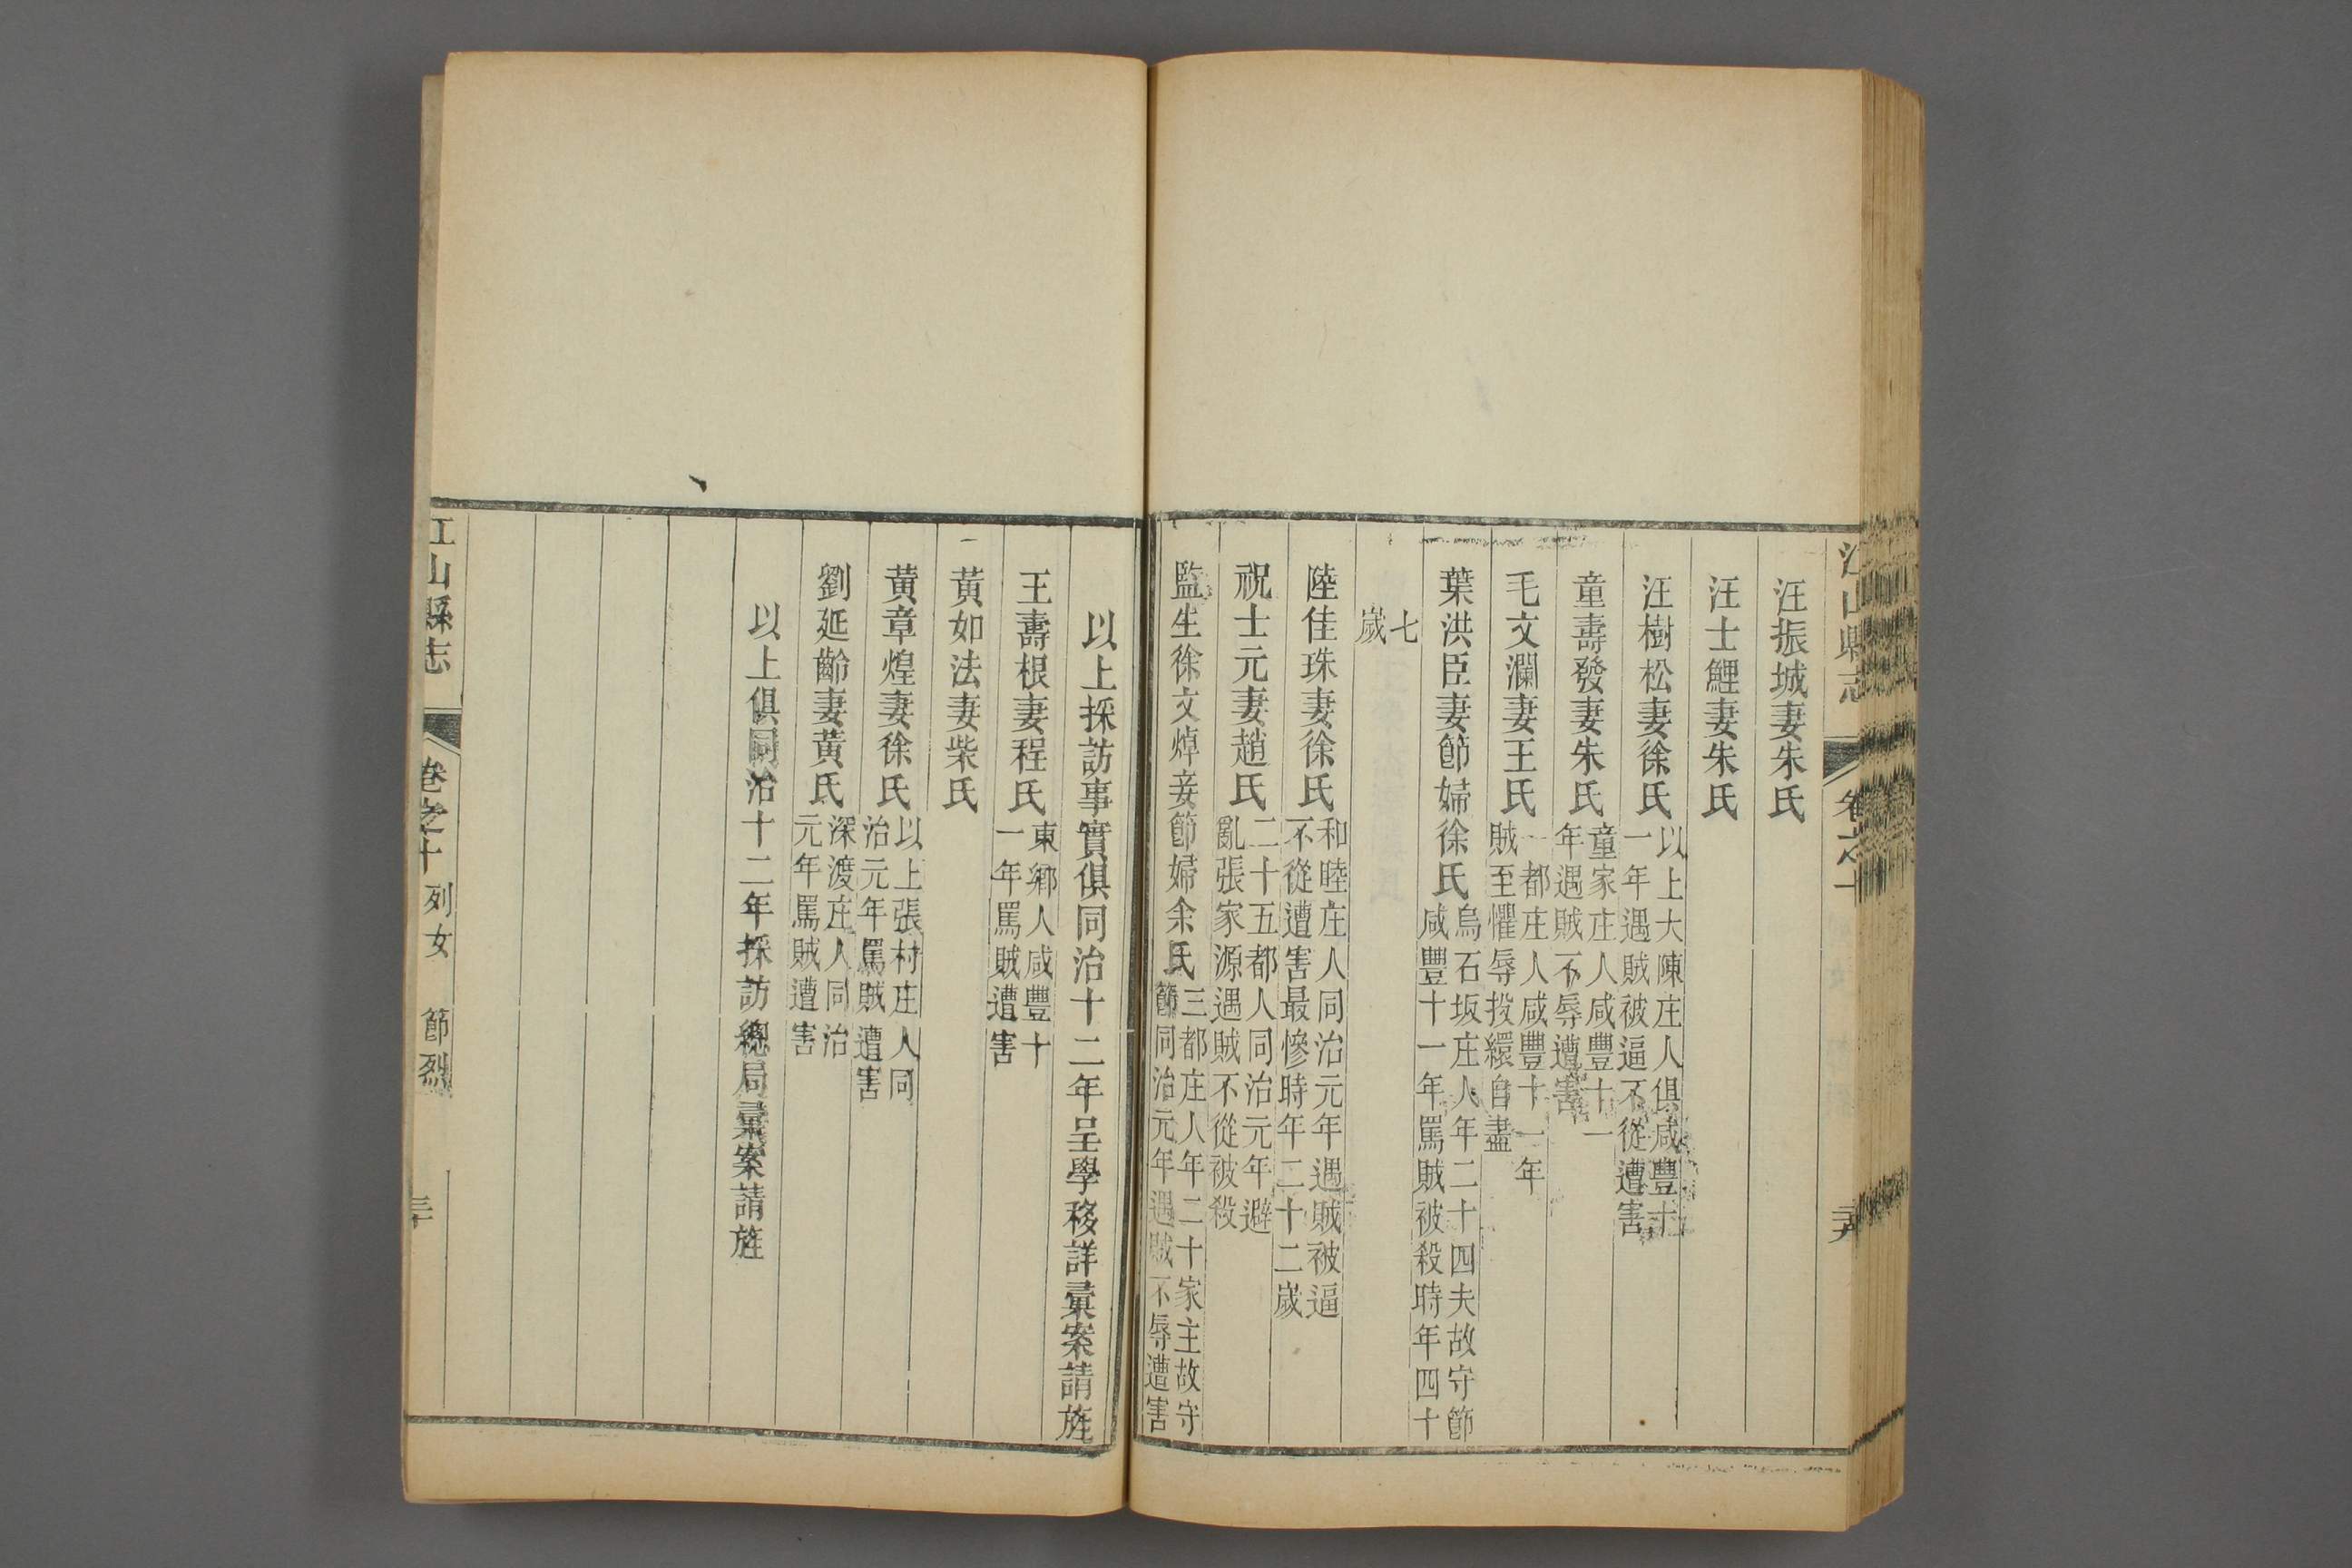 江山縣志
卷之十
汪振城妻朱氏
汪士鯉妻朱氏
汪樹松妻徐氏以上大陳庄人俱咸豐十
一年遇賊被逼不從遭害
童壽發妻朱氏童家庄人咸豐十一
年遇賊不辱遭害
毛文瀾妻王氏一都庄人咸豐十一年
賊至懼辱投繯自盡
葉洪臣妻節婦徐氏烏石坂庄人年二十四夫故守節
咸豐十一年罵賊被殺時年四十
七
歲
陸佳珠妻徐氏和睦庄人同治元年遇賊被逼
不從遭害最慘時年二十二歲
祝士元妻趙氏二十五都人同治元年避
亂張家源遇賊不從被殺
監生徐文焯妾節婦余氏三都庄人年二十家主故守
節同治元年遇賊不辱遭害
以上採訪事實俱同治十二年呈學移詳彙案請旌
王壽根妻程氏東鄉人咸豐十
一年罵賊遭害
黃如法妻柴氏
黃章煌妻徐氏以上張村庄人同
治元年罵賊遭害
劉延齡妻黃氏深渡庄人同治
元年罵賊遭害
以上俱同治十二年採訪總局彙案請旌
江山縣志
卷之十 列女 節烈
三十